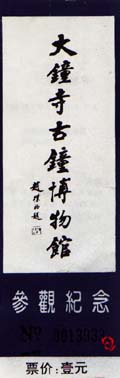 大鐘寺古鐘博物館
趙樸初題
參觀紀念
№ 0013933
票价:壹元